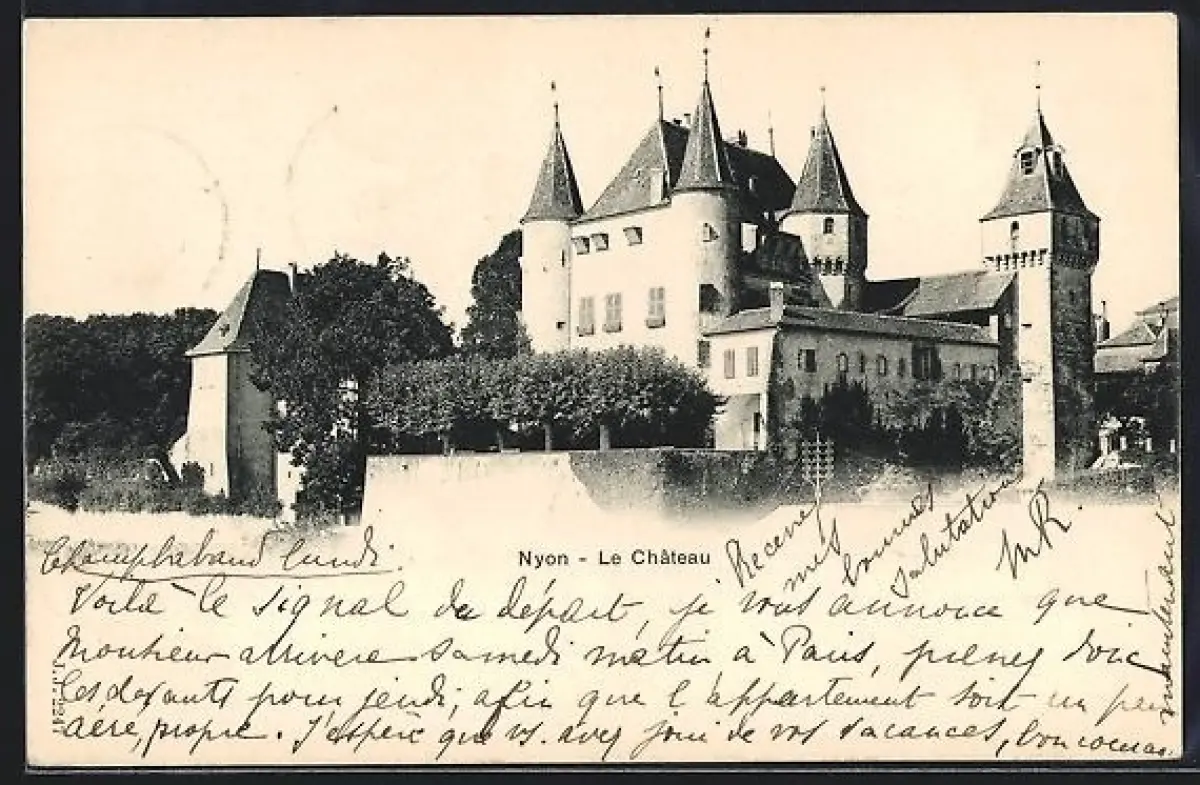 Nyon - Le Château
Recevez mes bonnes salutations MR.
Champhabaud lundi.
Voilà le signal du départ, je vous annonce que
Monsieur arrivera samedi matin à Paris, prenez donc
les devants pour jeudi, afin que l'appartement soit un peu
aéré, propre. J'espère que vs. avez joui de vos vacances, bon courage
maintenant